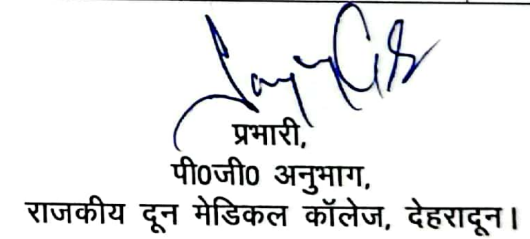 प्रभारी,
पी0जी0 अनुभाग,
राजकीय दून मेडिकल कॉलेज, देहरादून।